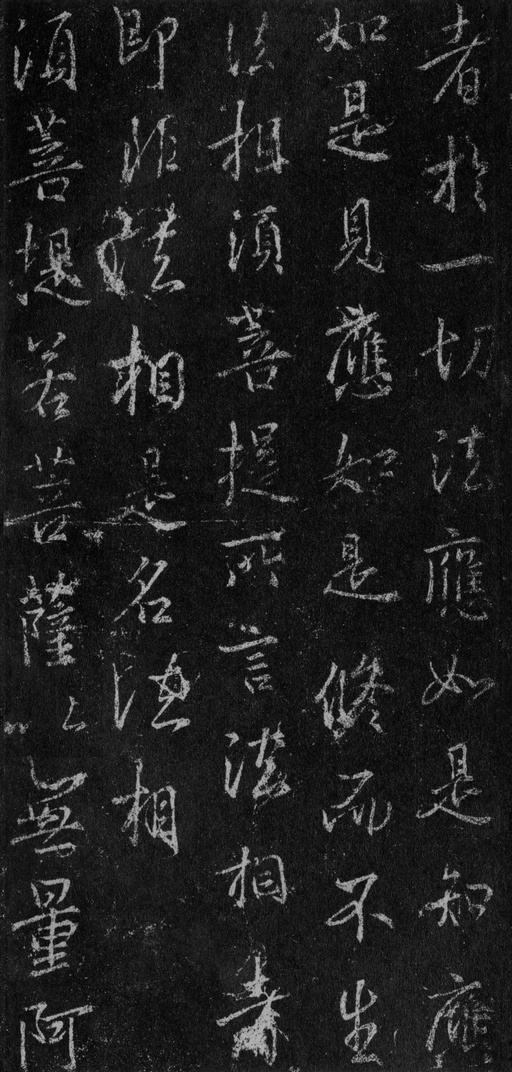 者於一切法應如是知應
如是見應如是修而不生
法相須菩提所言法相者
即非法相是名法相
須菩提若菩薩〻無量阿